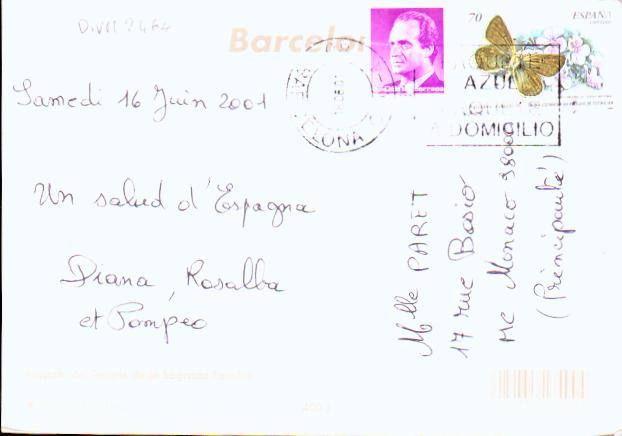 D.VII 2464
Barcelon
70 ESPAÑA
AZUL
A DOMICILIO
LONA
Samedi 16 Juin 2001
Un salud d'Espagna
Diana, Rosalba
et Pompeo
Mlle PARET
17 rue Bosio
MC Monaco 98000
(Principauté)
Templo de la Sagrada Familia